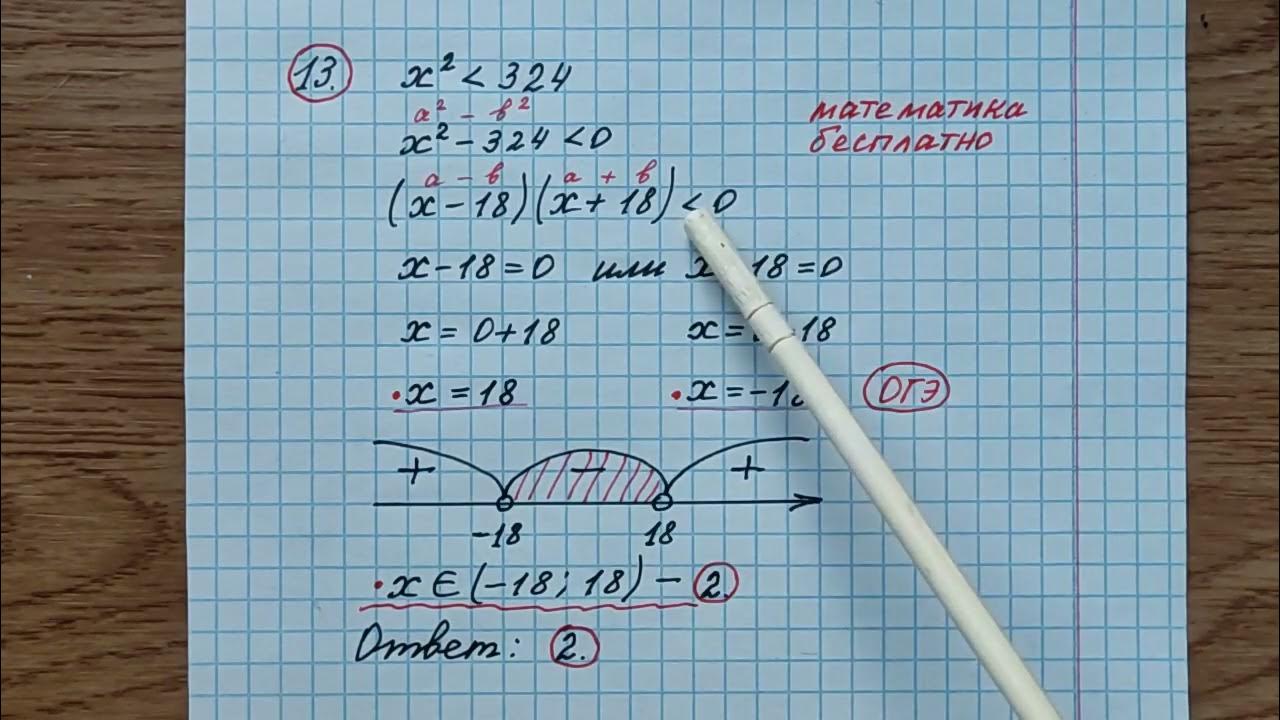 13. x² < 324
a² - b²
x² - 324 < 0
математика
бесплатно
a - b a + b
(x - 18)(x + 18) < 0
x - 18 = 0 или x 18 = 0
x = 0 + 18 x = 18
x = 18 x = -1
ОГЭ
+ - +
-18 18
x ∈ (-18; 18) - 2.
Ответ: 2.